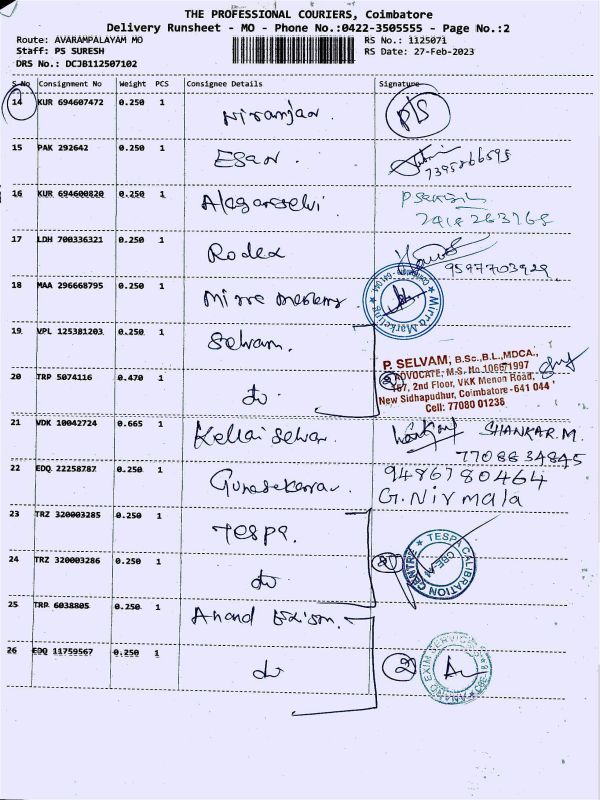 THE PROFESSIONAL COURIERS, Coimbatore
Delivery Runsheet - MO - Phone No.:0422-3505555 - Page No.:2
Route: AVARAMPALAYAM MO
RS No.: 1125071
Staff: PS SURESH
RS Date: 27-Feb-2023
DRS No.: DCJB112507102
S.No Consignment No Weight PCS Consignee Details Signature
14 KUR 694607472 0.250 1 Niranjan
15 PAK 292642 0.250 1 Esan
7395266595
16 KUR 694600820 0.250 1 Alagarselvi
17 LDH 700336321 0.250 1 Rodex
9597703929
18 MAA 296668795 0.250 1
Mirra Marketing
19 VPL 125381203 0.250 1 Selvam
P. SELVAM, B.Sc.,B.L.,MDCA.,
ADVOCATE, M.S. No 1066/1997
167, 2nd Floor, VKK Menon Road,
New Sidhapudhur, Coimbatore - 641 044
Cell: 77080 01236
20 TRP 5074116 0.470 1 do
2
21 VDK 10042724 0.665 1
SHANKAR.M
7708834845
22 EDQ 22258787 0.250 1 Gunasekaran
9486780464
G. Nirmala
23 TRZ 320003285 0.250 1 Tespa.
24 TRZ 320003286 0.250 1 do
2
TESPA CALIBRATION CENTRE
CBE-14
25 TRP 6038805 0.250 1 Anand Exism.
26 EDQ 11759567 0.250 1 do
2